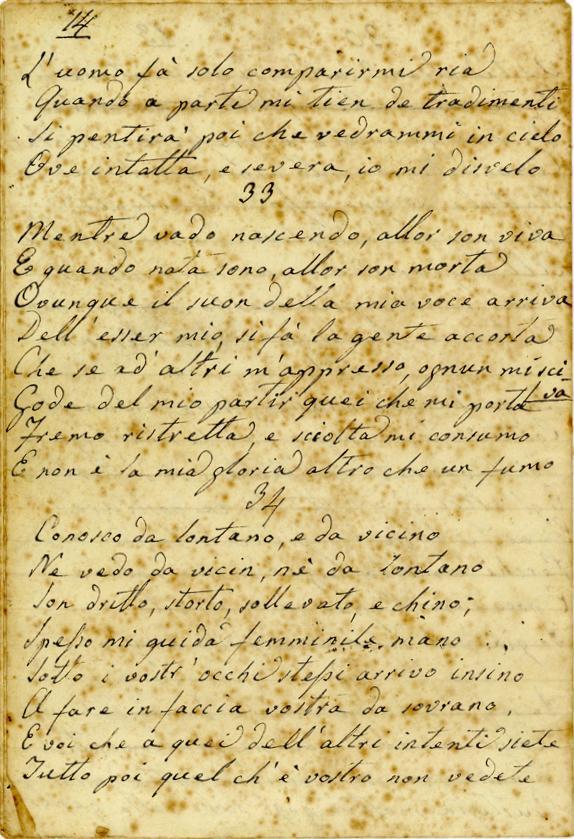 14
L'uomo fà solo comparirmi ria
Quando a parte mi tien de tradimenti
Si pentirà poi che vedrammi in cielo
Ove intatta, e severa, io mi disvelo
33
Mentre vado nascendo, allor son viva
E quando nata sono, allor son morta
Ovunque il suon della mia voce arriva
Dell'esser mio, si fà la gente accorta
Che se ad'altri m'appresso, ognun mi sci-
va
Gode del mio partir quei che mi porta
Fremo ristretta, e sciolta mi consumo
E non è la mia gloria altro che un fumo
34
Conosco da lontano, e da vicino
Ne vedo da vicin, nè da lontano
Son dritto, storto, sollevato, e chino;
Spesso mi guida femminile mano
Sotto i vostr'occhi stessi arrivo insino
A fare in faccia vostra da sovrano,
E voi che a quei dell'altri intenti siete
Tutto poi quel ch'è vostro non vedete